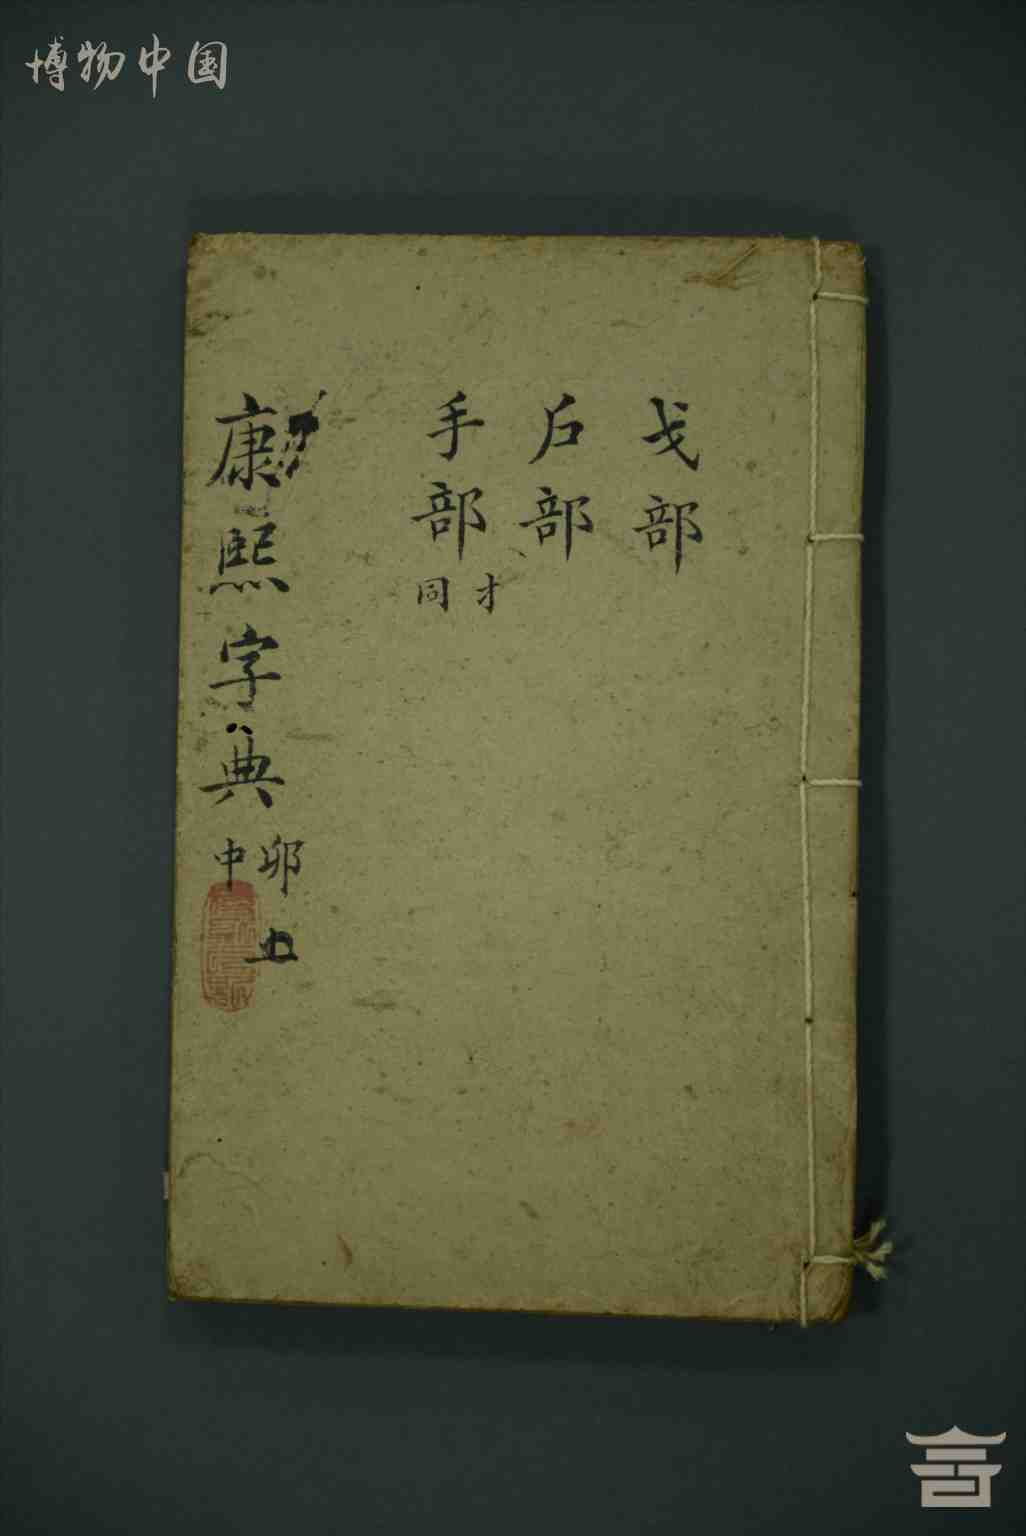 博物中国
戈部
户部
手部
才同
康熙字典
卯中